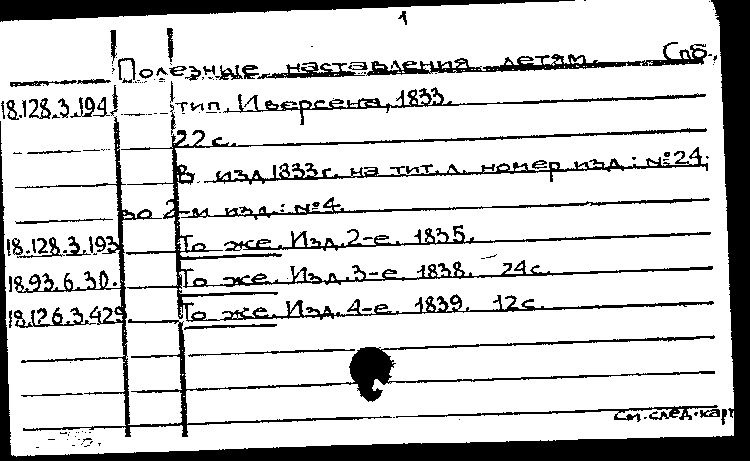 1
Полезные наставления детям. Спб.,
18.128.3.194. тип. Иверсена, 1833.
22 с.
В изд. 1833 г. на тит. л. номер изд.: №24;
во 2-м изд.: №4.
18.128.3.193 То же. Изд. 2-е. 1835.
18.93.6.30. То же. Изд. 3-е. 1838. 24 с.
18.126.3.429 То же. Изд. 4-е. 1839. 12 с.
См. след. карт